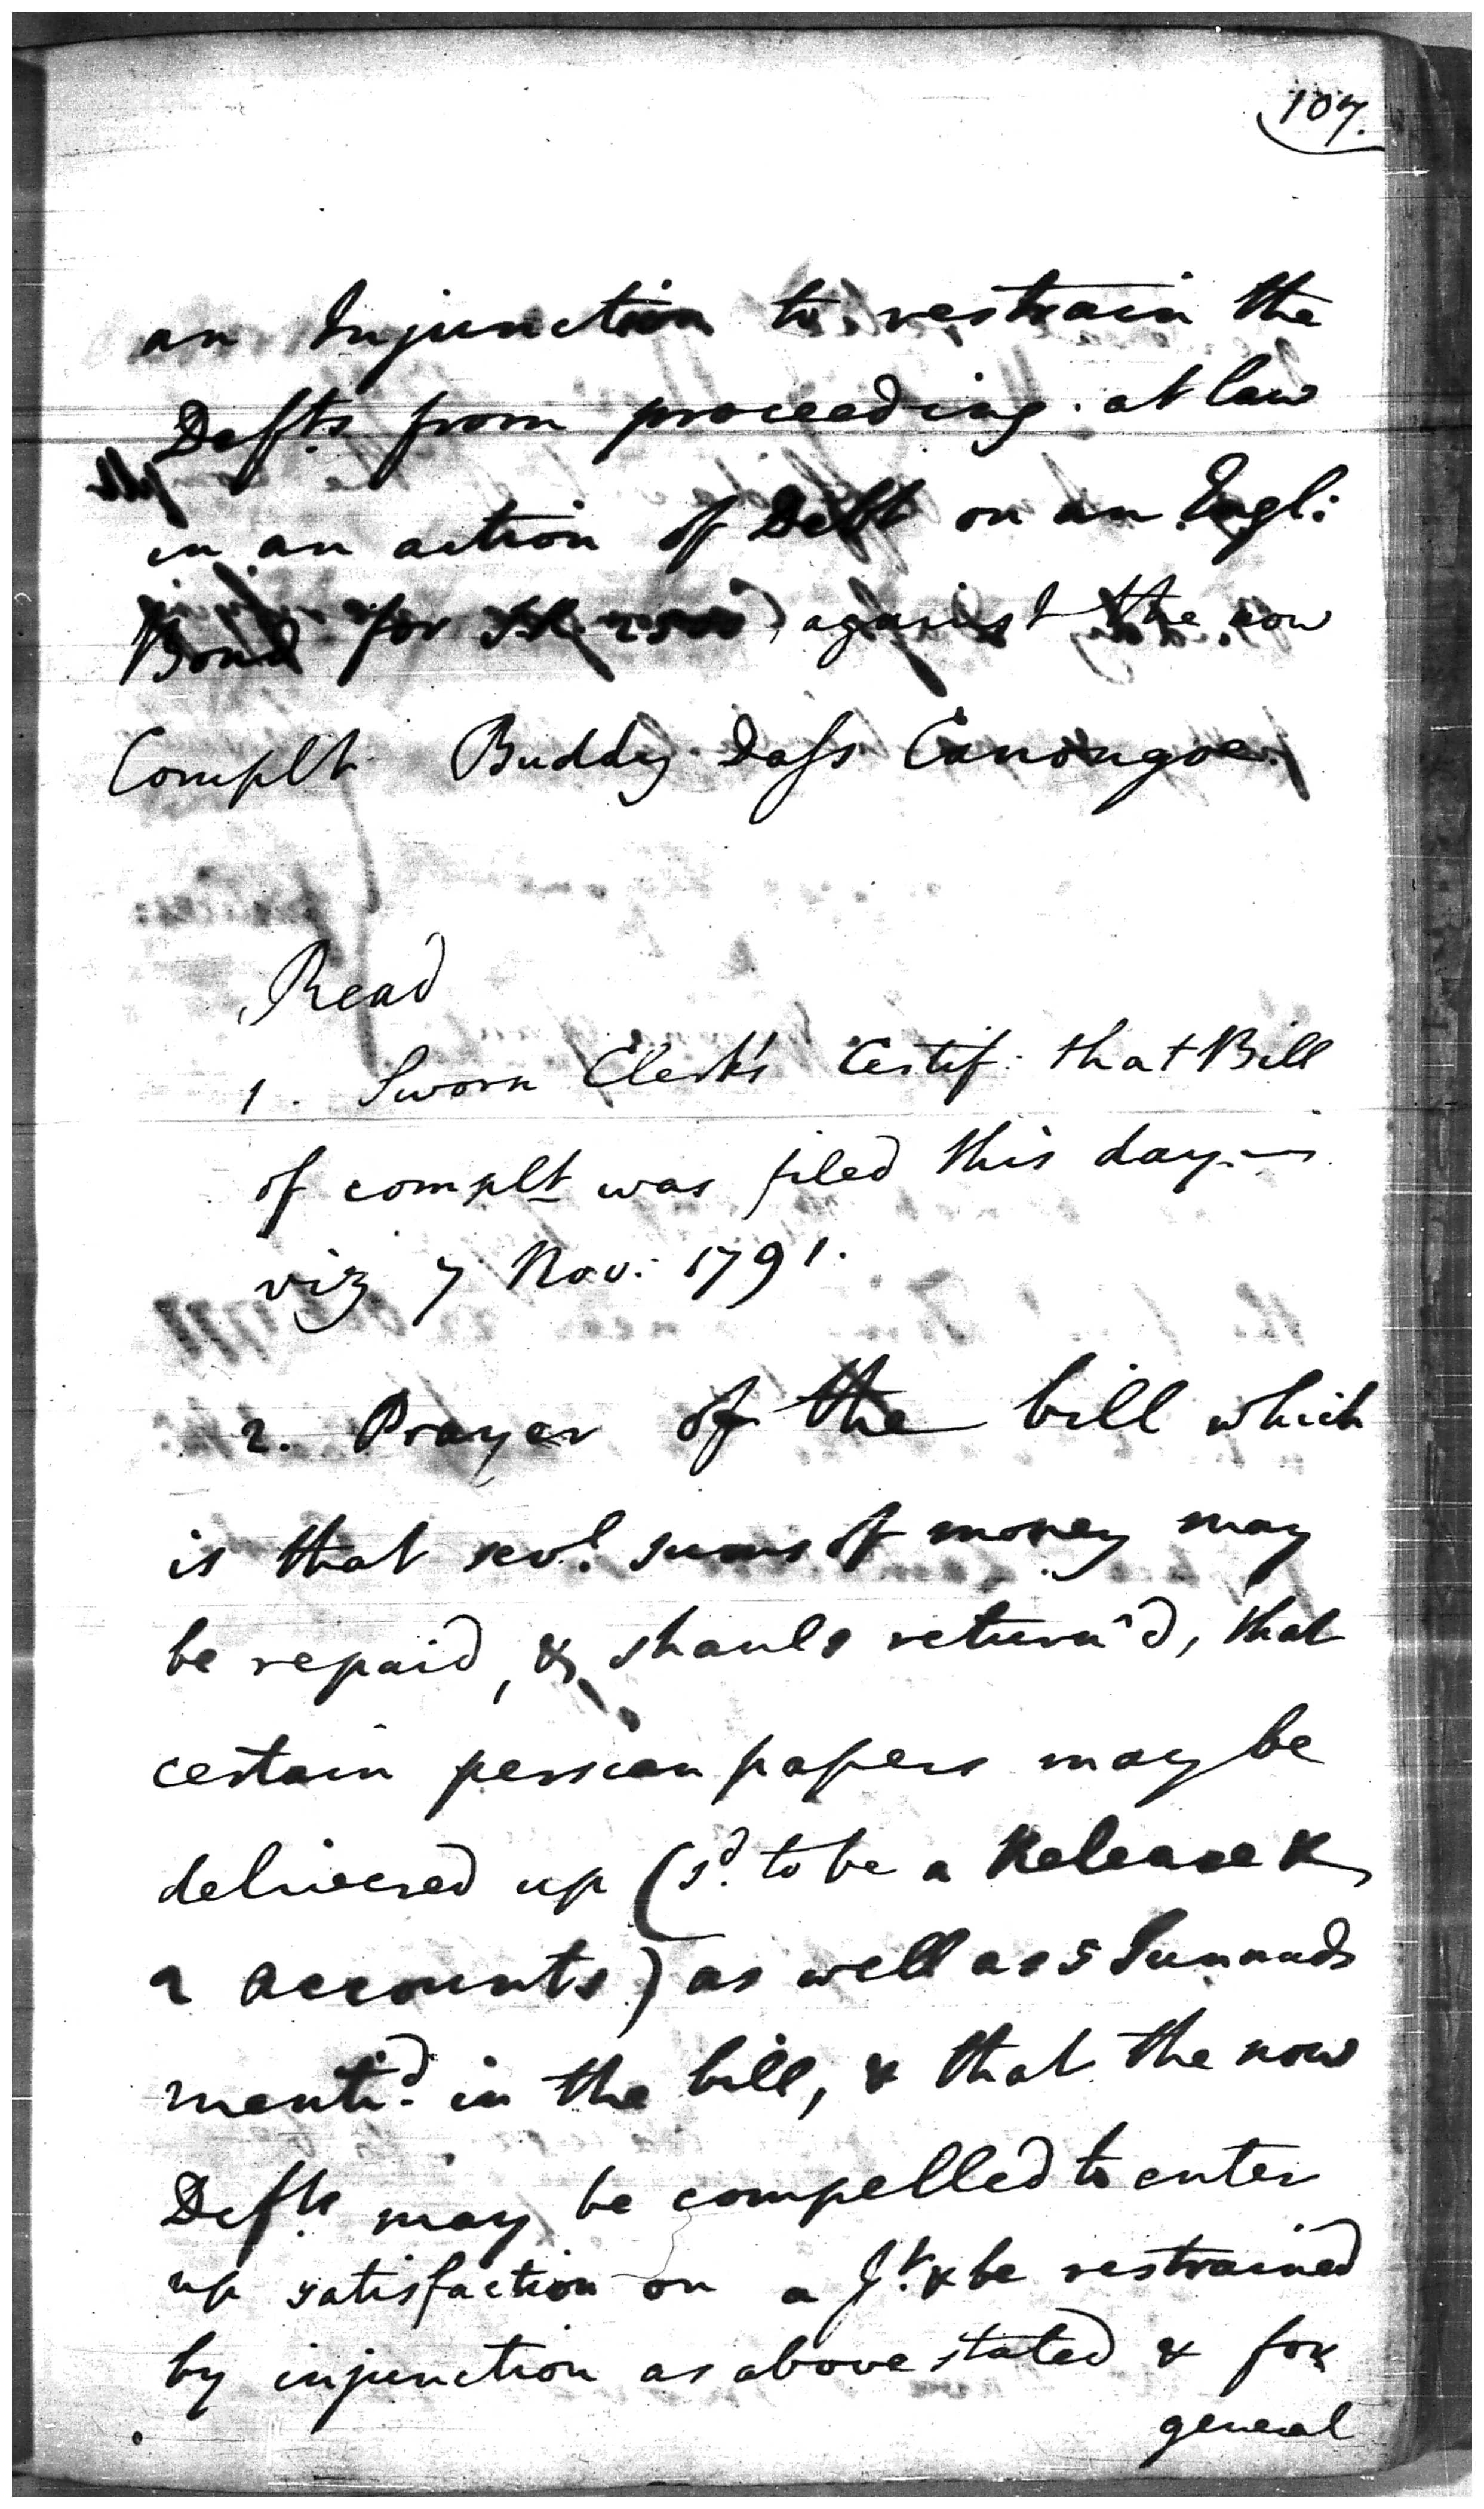 107.
an Injunction to restrain the
Defts. from proceeding at law
in an action of Debt on an Engl:
Bond for against the now
Complt Buddy Dass Canongoe.
Read
1. Sworn Clerk's Certif: that Bill
of complt was filed this day—
viz 7 Nov: 1791.
2. Prayer of the bill which
is that sevl. sums of money may
be repaid, & shauls return'd, that
certain persian papers may be
delivered up (sd. to be a Release &
2 accounts) as well as 5 Sunnuds
mentd. in the bill, & that the now
Defts. may be compelled to enter
up satisfaction on a Jt. & be restrained
by injunction as above stated & for
general